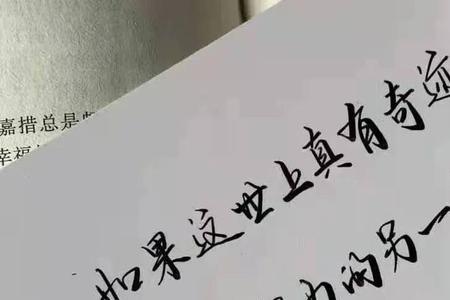 嘉措总是
幸福
如果这世上真有奇迹
的另一